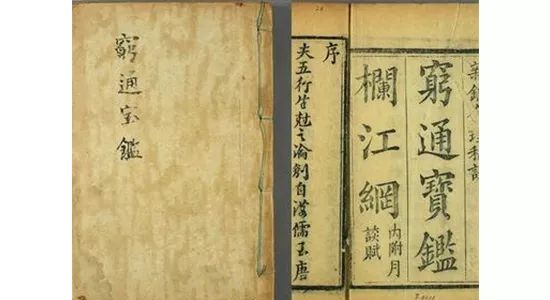 窮通宝鑑
窮通寶鑑
欄江網
內附月
談賦
序
夫五行生尅之論創自漢儒至唐